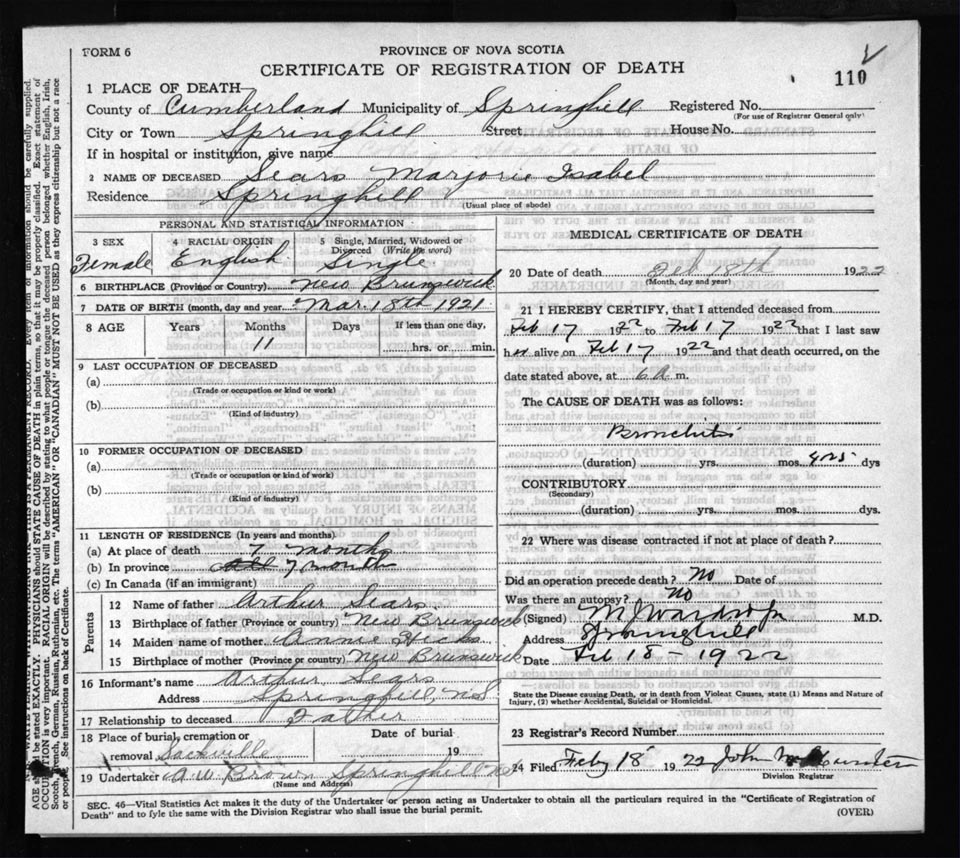 FORM 6
PROVINCE OF NOVA SCOTIA
CERTIFICATE OF REGISTRATION OF DEATH
110
1 PLACE OF DEATH
County of Cumberland Municipality of Springhill Registered No.
(For use of Registrar General only)
City or Town Springhill Street House No.
If in hospital or institution, give name
2 NAME OF DECEASED Sears Marjorie Isabel
Residence Springhill
(Usual place of abode)
PERSONAL AND STATISTICAL INFORMATION
3 SEX 4 RACIAL ORIGIN 5 Single, Married, Widowed or Divorced (Write the word)
Female English Single
6 BIRTHPLACE (Province or Country) New Brunswick
7 DATE OF BIRTH (month, day and year) Mar. 18th 1921
8 AGE Years Months Days If less than one day,
11 hrs. or min.
9 LAST OCCUPATION OF DECEASED
(a)
(Trade or occupation or kind or work)
(b)
(Kind of industry)
10 FORMER OCCUPATION OF DECEASED
(a)
(Trade or occupation or kind of work)
(b)
(Kind of industry)
11 LENGTH OF RESIDENCE (In years and months)
(a) At place of death 7 months
(b) In province 7 months
(c) In Canada (if an immigrant)
Parents
12 Name of father Arthur Sears
13 Birthplace of father (Province or country) New Brunswick
14 Maiden name of mother Annie Hicks
15 Birthplace of mother (Province or country) New Brunswick
16 Informant's name Arthur Sears
Address Springhill, N.S.
17 Relationship to deceased Father
18 Place of burial, cremation or Date of burial
removal Sackville 19
19 Undertaker A W Brown Springhill NS
(Name and Address)
MEDICAL CERTIFICATE OF DEATH
20 Date of death Feb 18th 1922
(Month, day and year)
21 I HEREBY CERTIFY, that I attended deceased from
Feb 17 1922 to Feb 17 1922 that I last saw
her alive on Feb 17 1922 and that death occurred, on the
date stated above, at 6 a m.
The CAUSE OF DEATH was as follows:
Bronchitis
(duration) yrs. mos. dys
CONTRIBUTORY
(Secondary)
(duration) yrs. mos. dys.
22 Where was disease contracted if not at place of death?
Did an operation precede death? No Date of
Was there an autopsy? No
(Signed) M.D.
Address Springhill
Date Feb 18 - 1922
State the Disease causing Death, or in death from Violent Causes, state (1) Means and Nature of
Injury, (2) whether Accidental, Suicidal or Homicidal.
23 Registrar's Record Number
24 Filed Feby 18 1922 John
Division Registrar
SEC. 46—Vital Statistics Act makes it the duty of the Undertaker or person acting as Undertaker to obtain all the particulars required in the "Certificate of Registration of
Death" and to fyle the same with the Division Registrar who shall issue the burial permit.
(OVER)
AGE should be stated EXACTLY. PHYSICIANS should STATE CAUSE OF DEATH in plain terms, so that it may be properly classified. Exact statement of
OCCUPATION is very important. RACIAL ORIGIN will be described by stating to what people or tongue the deceased person belonged whether English, Irish,
Scotch, French, German, Russian, Ruthenian, etc. The terms "AMERICAN" OR "CANADIAN" MUST NOT BE USED as they express citizenship but not a race
or people. See instructions on back of Certificate.